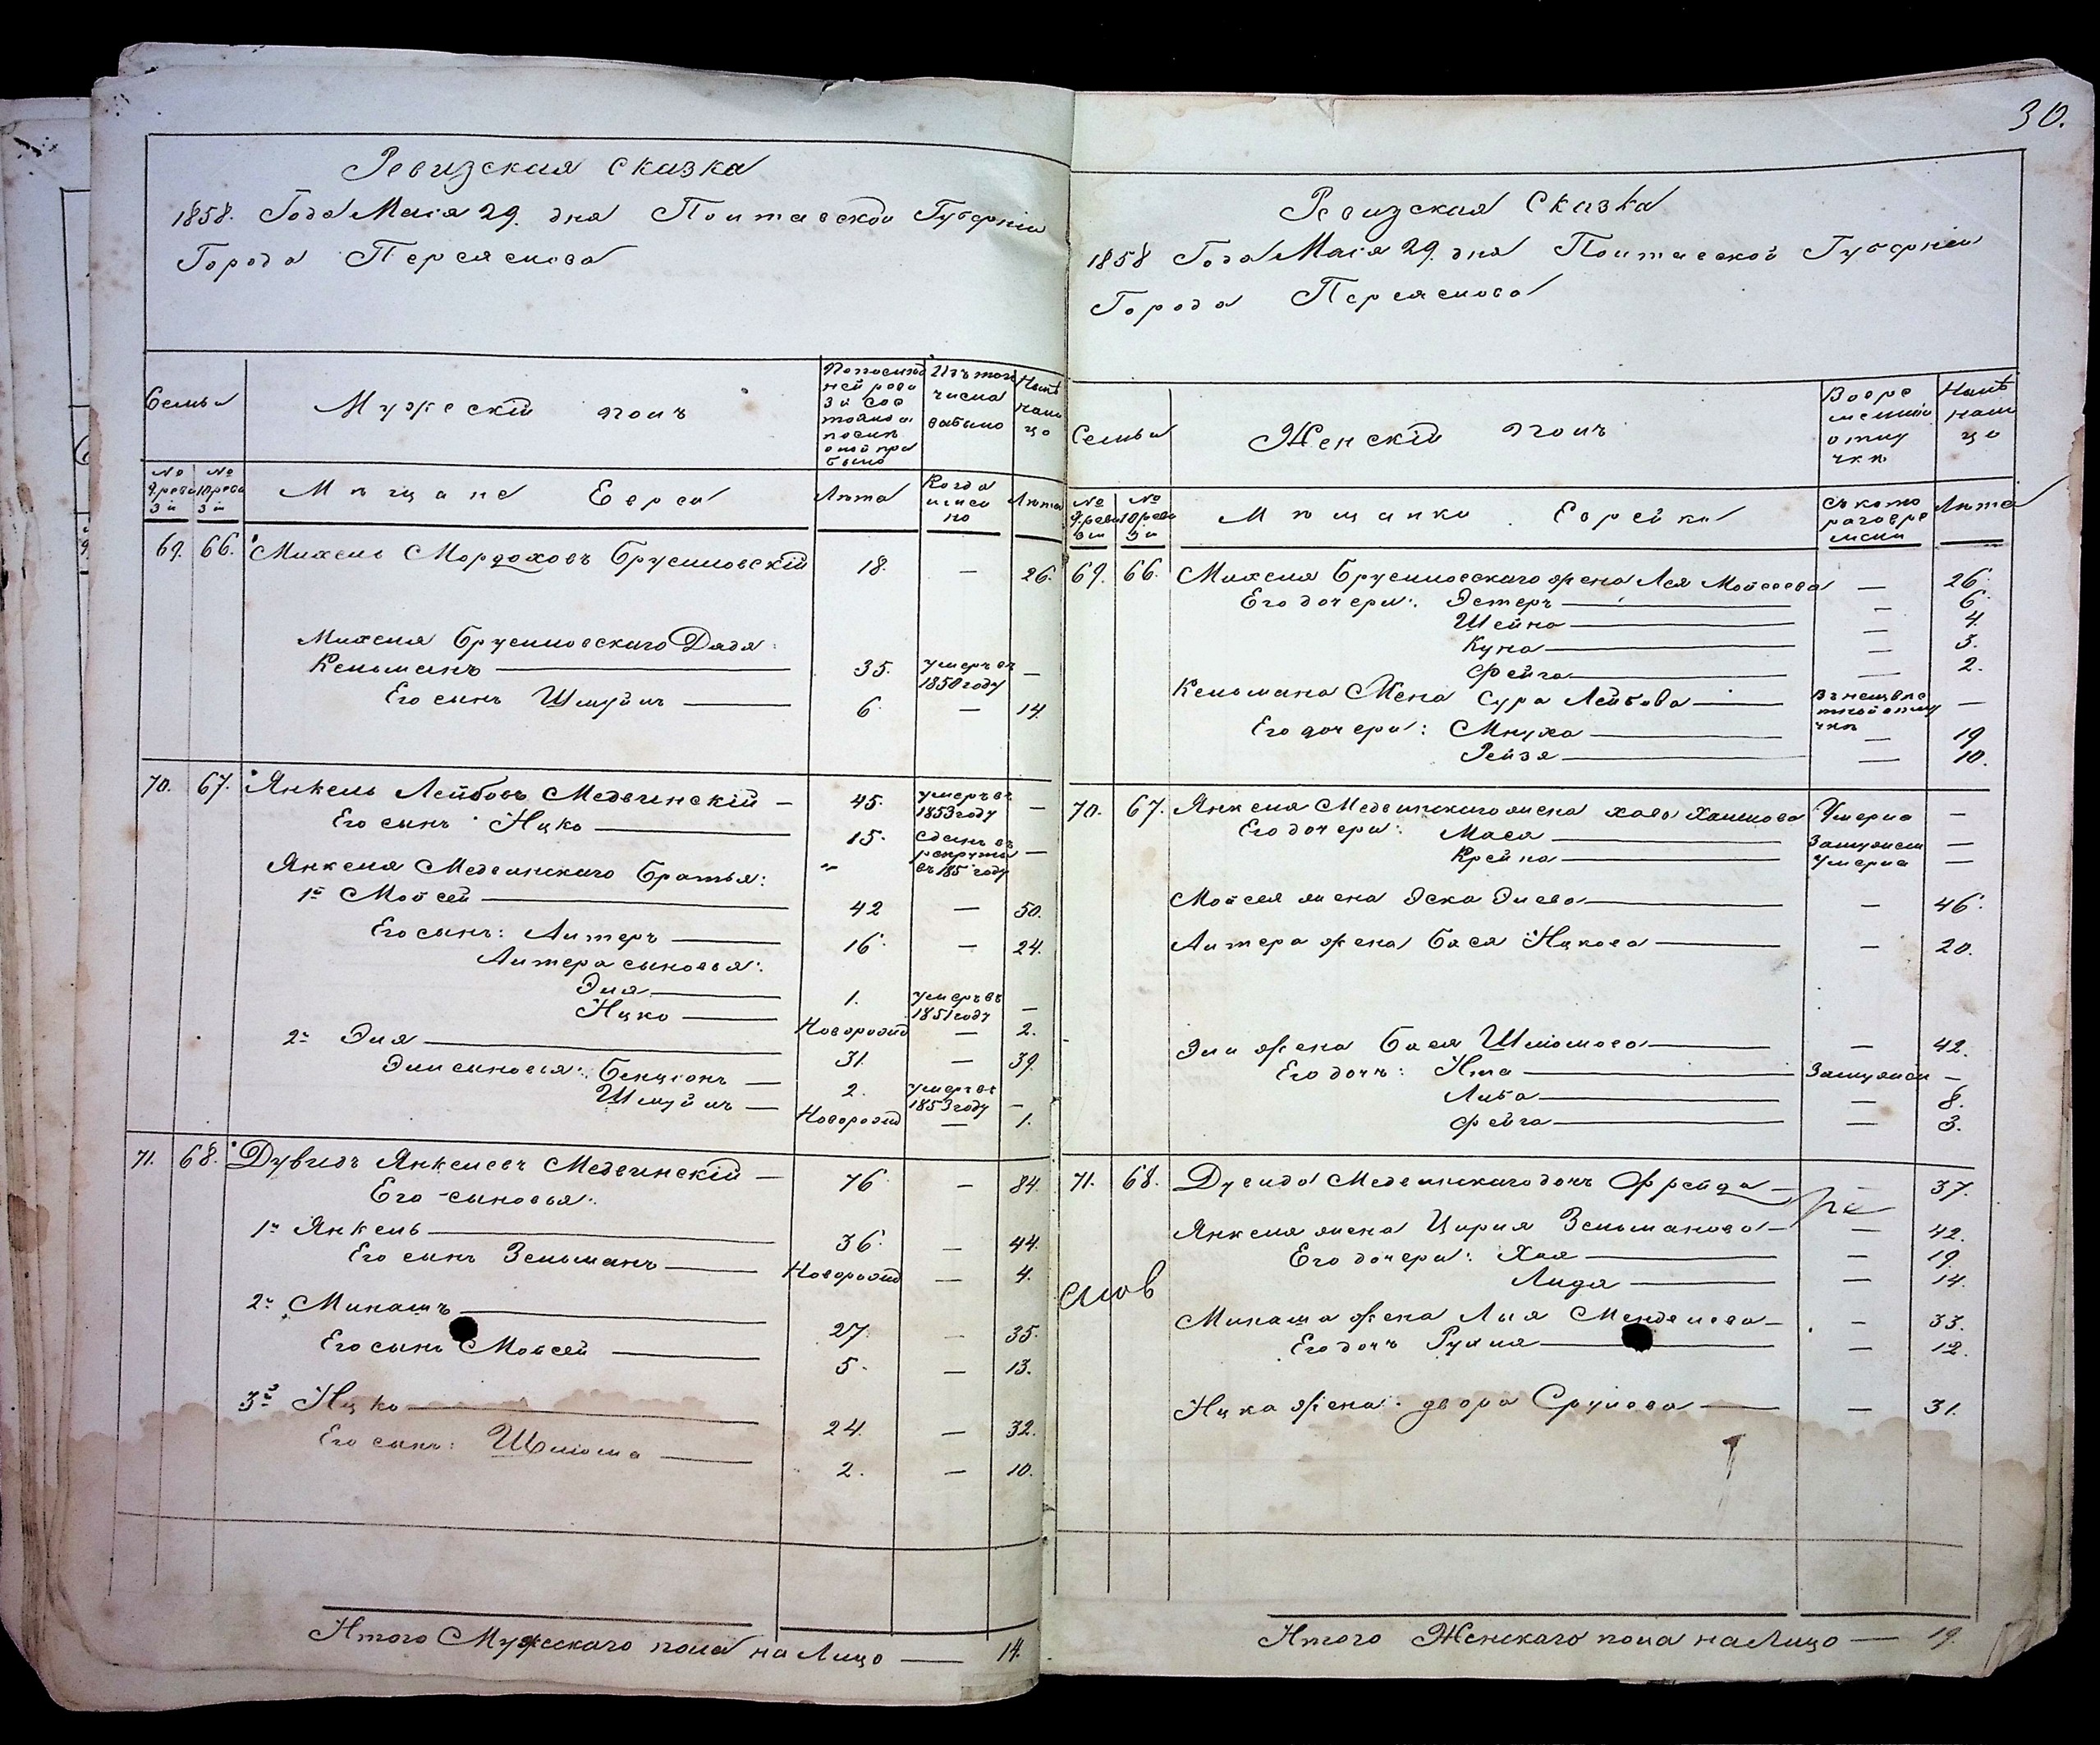 30.
Ревизская сказка
1858. Года Маія 29. дня Полтавской Губерніи
Города Переяслова
Семьи
Мужескій полъ
По последней ревизіи состояло и после оной прибыло
Изъ того числа выбыло
Ныне на лицо
№ 9 ревизіи
№ 10 ревизіи
Мещане Евреи
Лета
Когда именно
Лета
69. 66. Михель Мордоховъ Брусиловскій 18. — 26.
Михеля Брусиловскаго Дядя:
Кельманъ — 35. умеръ въ 1850 году —
Его сынъ Шмуйль — 6. — 14.
70. 67. Янкель Лейбовъ Медвинскій — 45. умеръ въ 1853 году —
Его сынъ Ицко — 15. сданъ въ рекруты въ 185 году —
Янкеля Медвинскаго братья: "
1й Мойсей — 42 — 50.
Его сынъ: Литеръ — 16. — 24.
Литера сыновья:
Эля — 1. умеръ въ 1851 году —
Ицко — Новорожд — 2.
2й Эля — 31. — 39.
Эли сыновья: Бенціонъ — 2. умеръ въ 1853 году —
Шмуйль — Новорожд — 1.
71. 68. Дувидъ Янкелевъ Медвинскій — 76. — 84.
Его сыновья:
1й Янкель — 36. — 44.
Его сынъ Зельманъ — Новорожд — 4.
2й Минашъ — 27. — 35.
Его сынъ Мойсей — 5. — 13.
3й Ицко — 24. — 32.
Его сынъ: Шлиома — 2. — 10.
Итого Мужескаго пола на Лицо — 14.
Ревизская Сказка
1858 Года Маія 29. дня Полтавской Губерніи
Города Переяслова
Семьи
Женскій полъ
Во временной отлучке
Ныне на лицо
№ 9 ревизіи
№ 10 ревизіи
Мещанки Еврейки
Съ котораго времени
Лета
69. 66. Михеля Брусиловскаго жена Лея Мойсеева — 26.
Его дочери: Эстеръ — 6.
Шейна — 4.
Куна — 3.
Фейга — 2.
Кельмана Жена Сура Лейбова — Въ неизвестной отлучке —
Его дочери: Мнуха — 19
Рейзя — 10.
70. 67. Янкеля Медвинскаго жена Хава Хаимова Умерла —
Его дочери: Мася — Замужем —
Крейна — Умерла —
Мойсея жена Эска Элева — 46.
Литера жена Бася Ицкова — 20.
Эли жена Бася Шлиомова — 42.
Его дочь: Ита — Замужем —
Либа — 8.
Фейга — 3.
71. 68. Дувида Медвинскаго дочь Фрейда — 37.
Янкеля жена Цирля Зельманова — 42.
Его дочери: Хая — 19.
Лида — 14.
Минаша жена Лыя Менделева — 33.
Его дочь Рухля — 12.
Ицка жена: двора Срулева — 31.
Итого Женскаго пола на Лицо — 19.